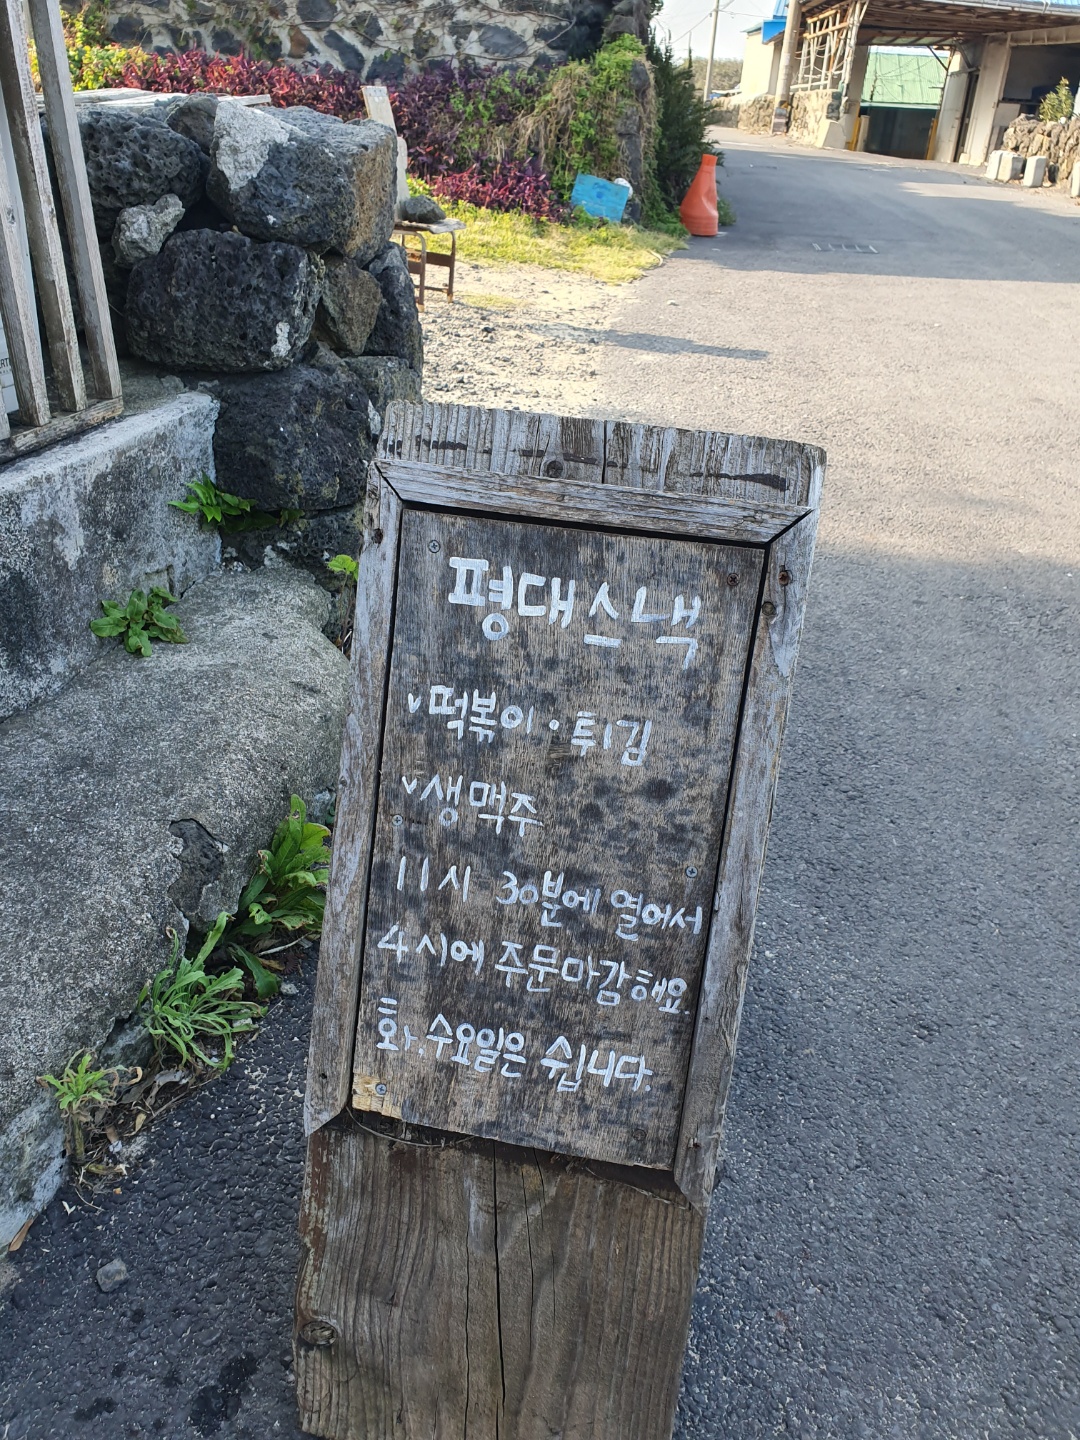 평대스낵
v떡볶이·튀김
v생맥주
11시 30분에 열어서
4시에 주문마감해요.
화.수요일은 쉽니다.